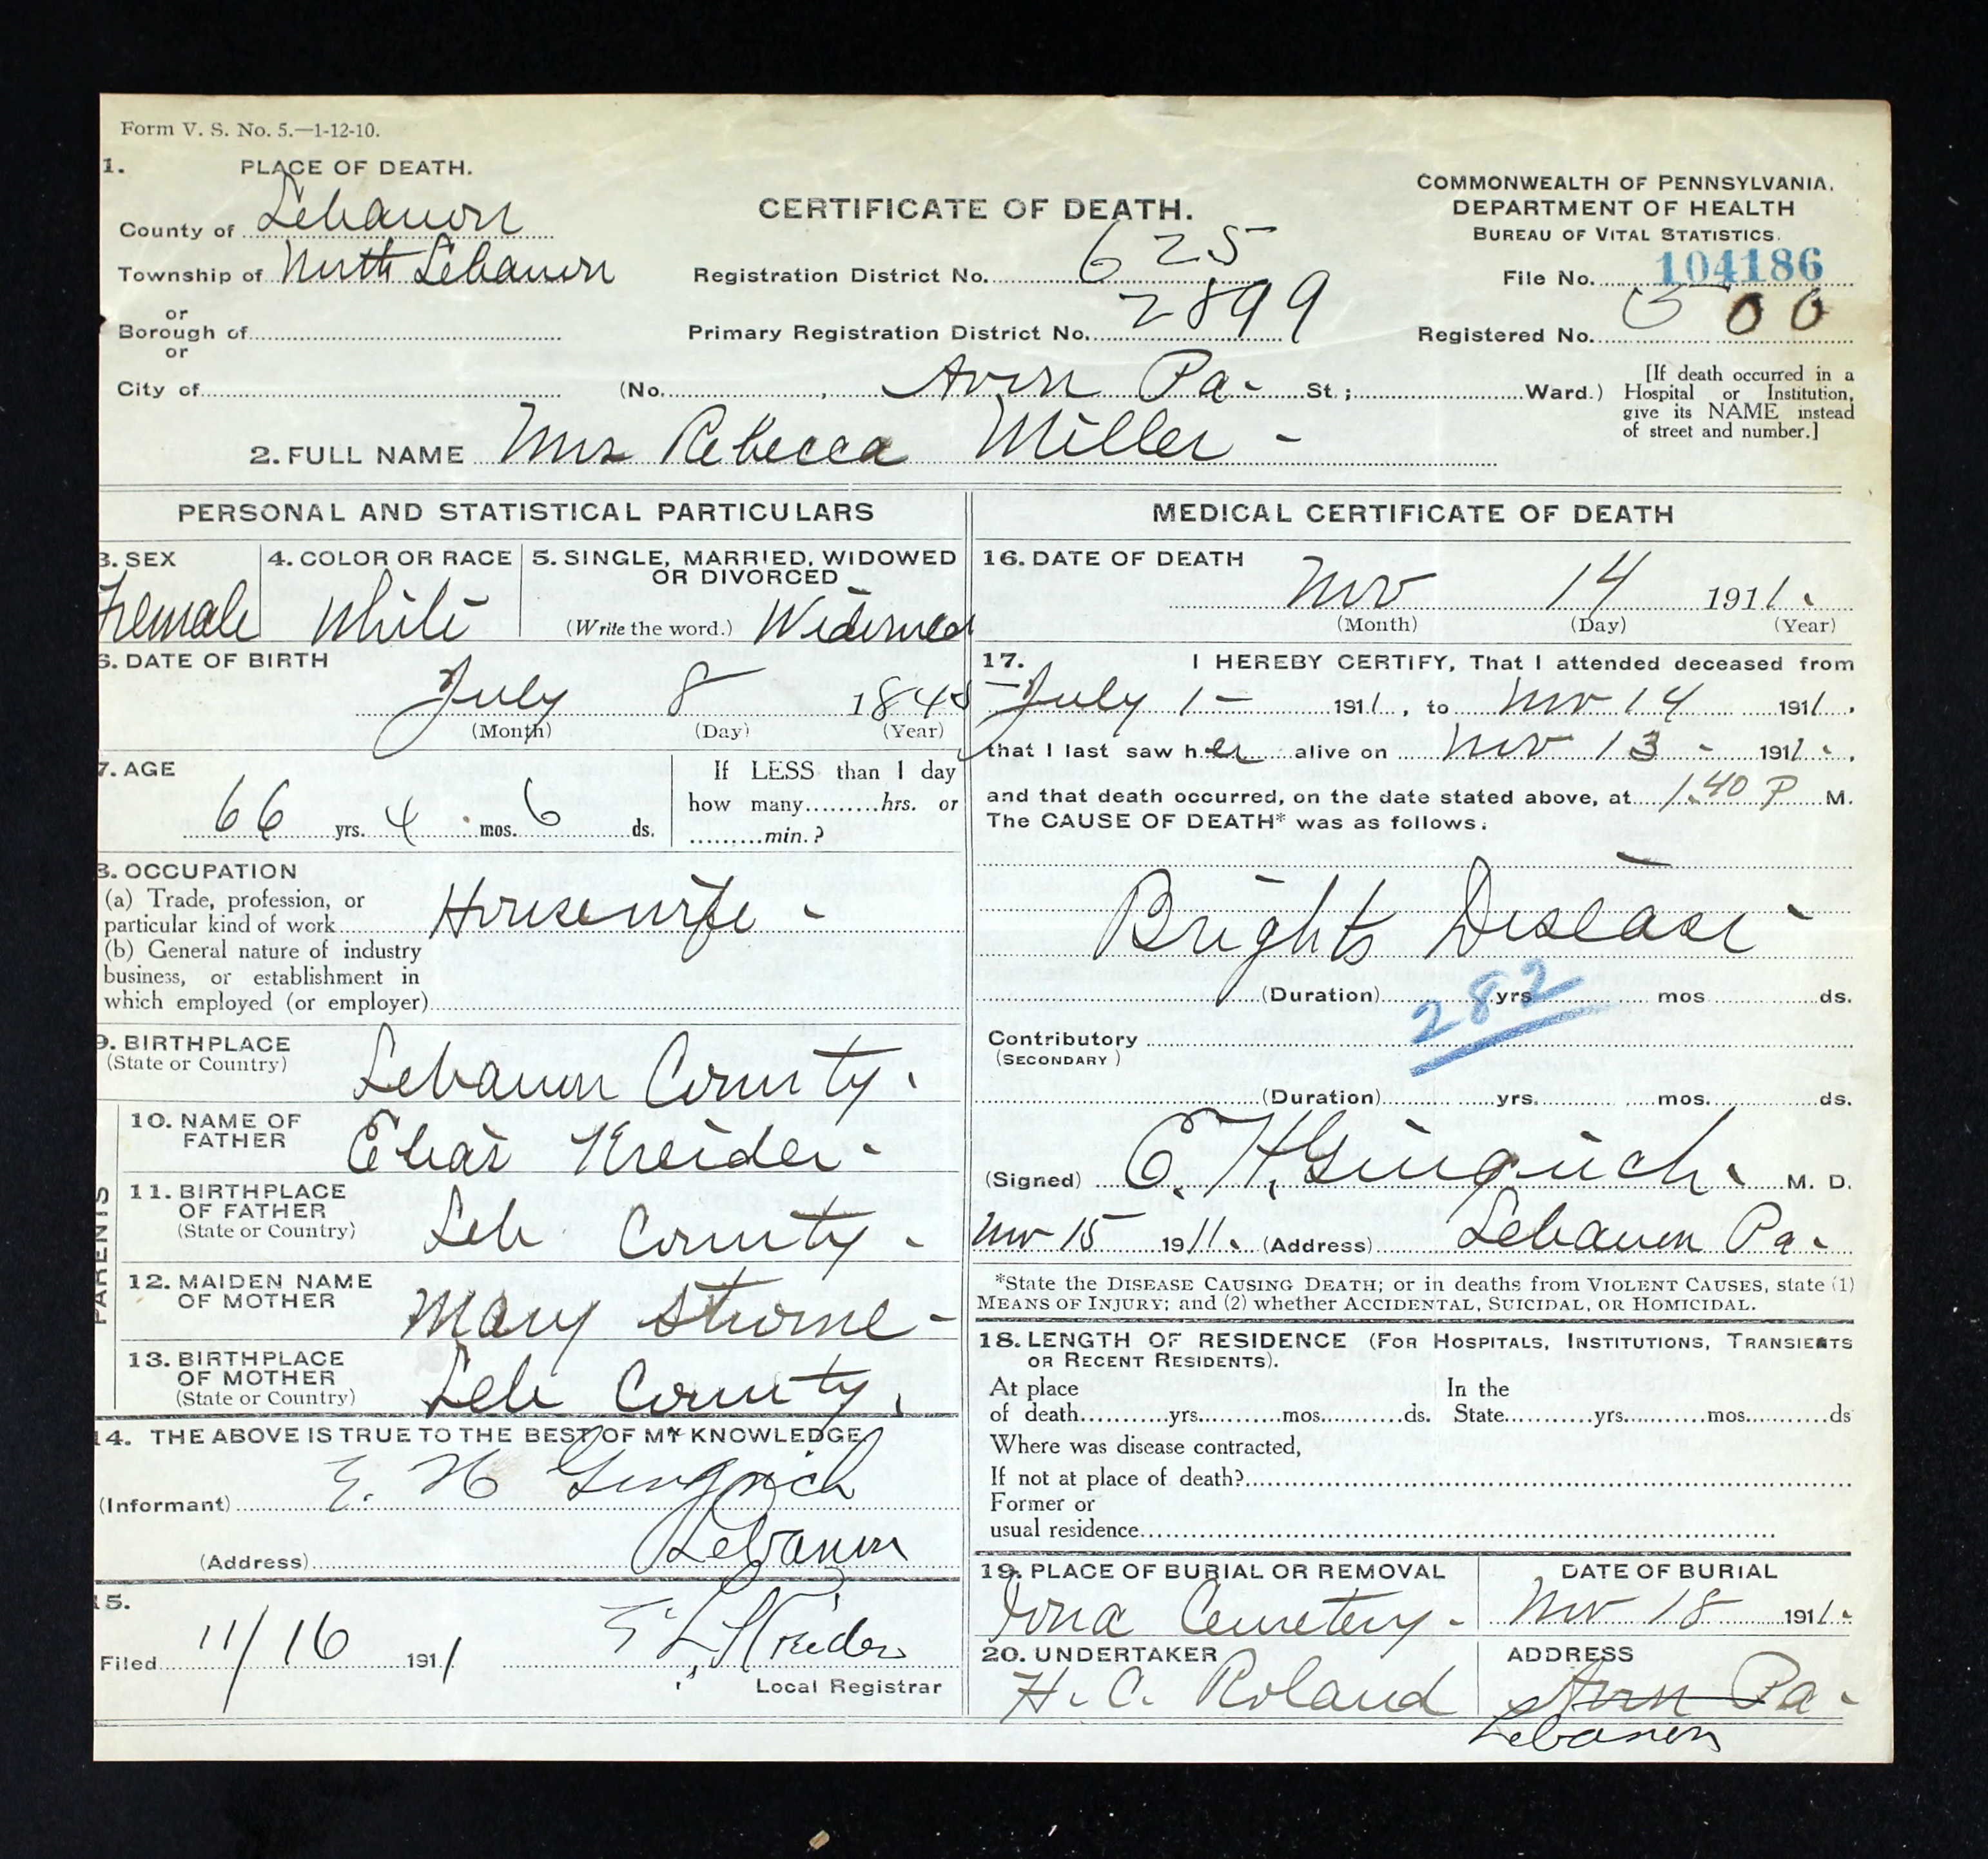 Form V. S. No. 5.—1-12-10.
1. PLACE OF DEATH.
County of Lebanon
Township of North Lebanon
or
Borough of
or
City of
CERTIFICATE OF DEATH.
Registration District No. 625
Primary Registration District No. 2899
(No. , Avon Pa - St.; Ward.)
COMMONWEALTH OF PENNSYLVANIA.
DEPARTMENT OF HEALTH
BUREAU OF VITAL STATISTICS.
File No. 104186
Registered No. 500
[If death occurred in a
Hospital or Institution,
give its NAME instead
of street and number.]
2. FULL NAME Mrs Rebecca Miller -
PERSONAL AND STATISTICAL PARTICULARS
3. SEX
Female
4. COLOR OR RACE
White
5. SINGLE, MARRIED, WIDOWED
OR DIVORCED
(Write the word.) Widowed
6. DATE OF BIRTH
July 8 1845
(Month) (Day) (Year)
7. AGE
66 yrs. 4 mos. 6 ds.
If LESS than 1 day
how many hrs. or
min.?
8. OCCUPATION
(a) Trade, profession, or
particular kind of work Housewife -
(b) General nature of industry
business, or establishment in
which employed (or employer)
9. BIRTHPLACE
(State or Country)
Lebanon County.
PARENTS
10. NAME OF
FATHER
Elias Kreider -
11. BIRTHPLACE
OF FATHER
(State or Country)
Leb County -
12. MAIDEN NAME
OF MOTHER
Mary -
13. BIRTHPLACE
OF MOTHER
(State or Country)
Leb County.
14. THE ABOVE IS TRUE TO THE BEST OF MY KNOWLEDGE
(Informant) E. H Gingrich
(Address) Lebanon
15.
Filed 11/16 1911 Kreider
Local Registrar
MEDICAL CERTIFICATE OF DEATH
16. DATE OF DEATH
Nov 14 1911.
(Month) (Day) (Year)
17. I HEREBY CERTIFY, That I attended deceased from
July 1 - 1911, to Nov 14 1911.
that I last saw her alive on Nov 13 - 1911.
and that death occurred, on the date stated above, at 1.40 P M.
The CAUSE OF DEATH* was as follows:
Brights Disease -
(Duration) yrs. mos ds.
282
Contributory
(SECONDARY)
(Duration) yrs. mos. ds.
(Signed) E. H. Gingrich. M. D.
Nov 15 1911. (Address) Lebanon Pa.
*State the DISEASE CAUSING DEATH; or in deaths from VIOLENT CAUSES, state (1)
MEANS OF INJURY; and (2) whether ACCIDENTAL, SUICIDAL, OR HOMICIDAL.
18. LENGTH OF RESIDENCE (FOR HOSPITALS, INSTITUTIONS, TRANSIENTS
OR RECENT RESIDENTS).
At place
of death yrs. mos. ds.
In the
State yrs. mos. ds
Where was disease contracted,
If not at place of death?
Former or
usual residence
19. PLACE OF BURIAL OR REMOVAL
Iona Cemetery -
DATE OF BURIAL
Nov 18 1911.
20. UNDERTAKER
H. C. Roland
ADDRESS
Avon Pa -
Lebanon